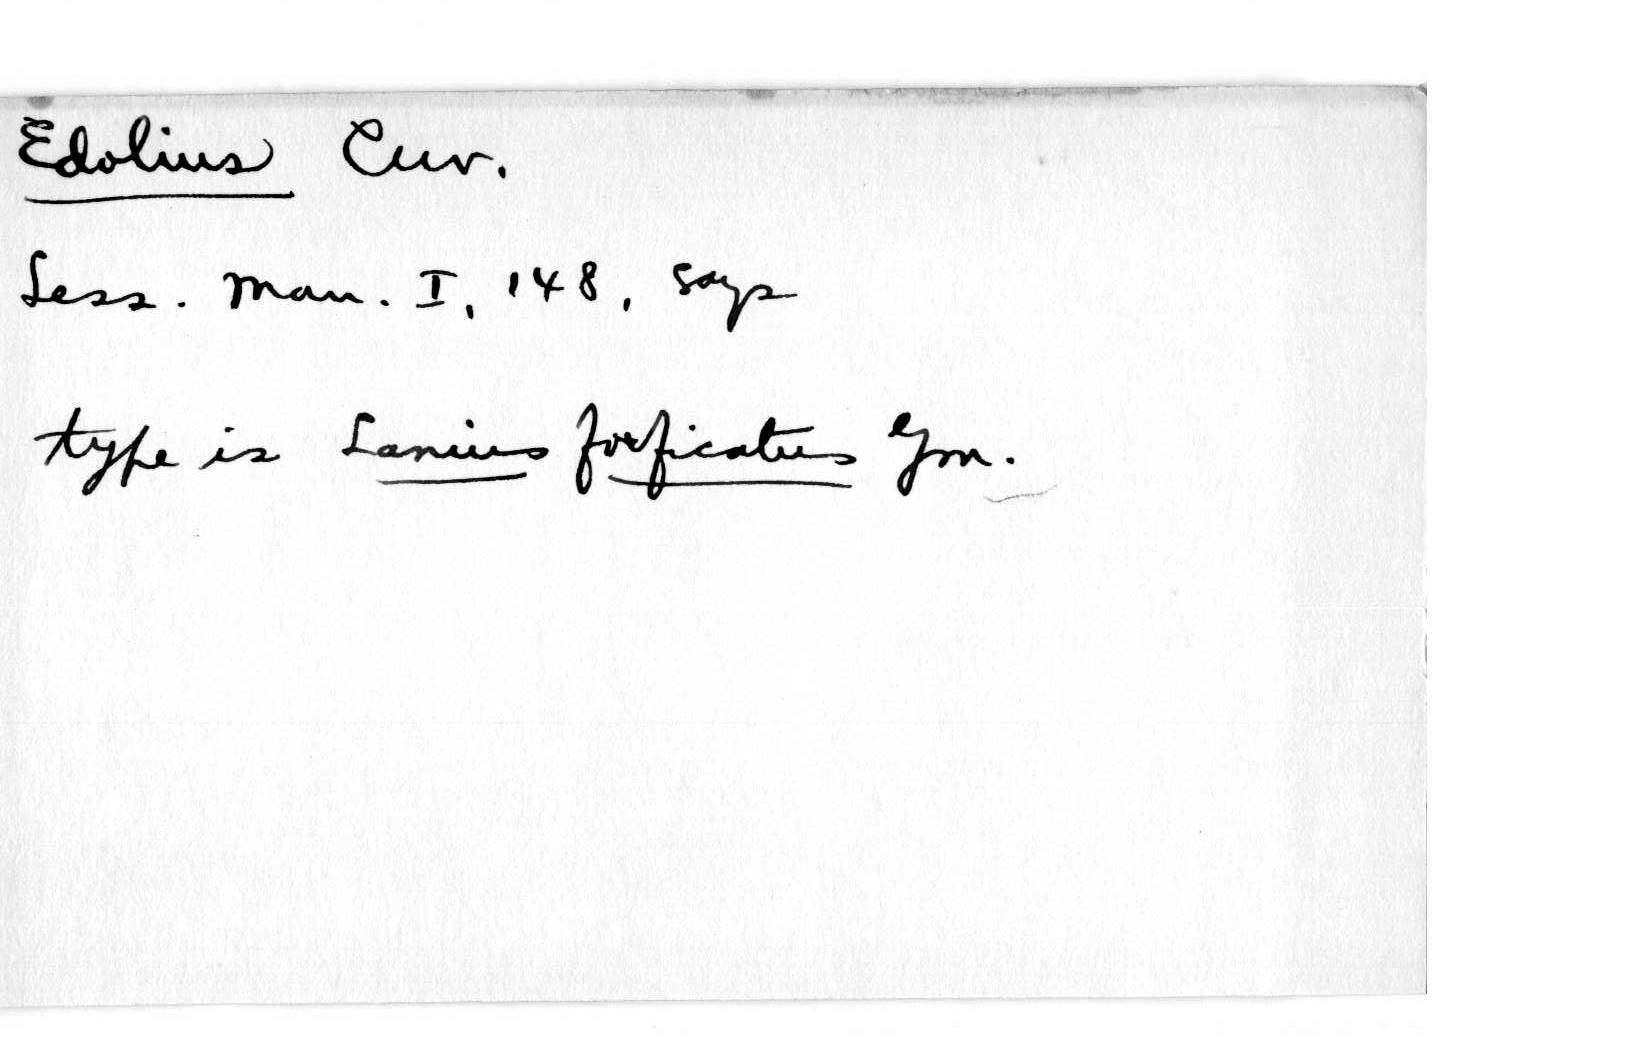 Edolius Cuv.
Less. Man. I, 148, says
type is Lanius forficatus Gm.